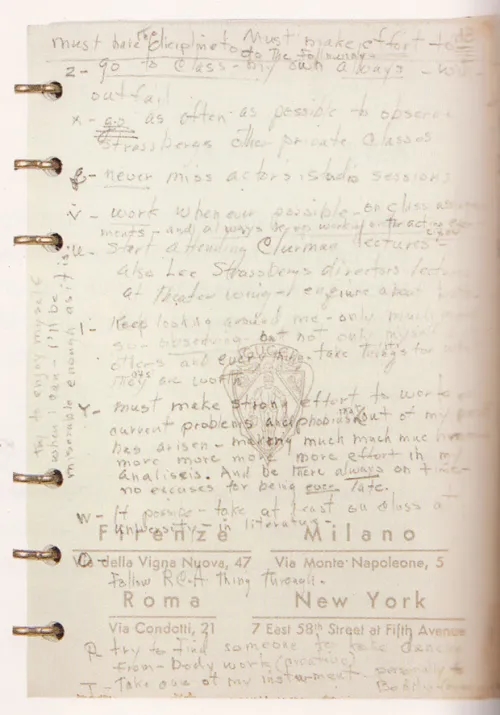 must have the dicipline to do the following –
Must make effort to
z – go to class – my own always – with-
out fail
x – go as often as possible to observe
Strassbergs other private classes
g – never miss actor's studio sessions
v – work whenever possible – on class
ments – and always keep working on the acting
u – start attending Clurman lectures –
also Lee Strassbergs directors
at theater wing – enquire about
l – Keep looking around me – only much
so – observing – but not only myself
others and everything – take things for
they are worth
Y – must make strong effort to work
current problems and phobias that out of my
has arisen – making much much much
more more more more effort in my
analisis. And be there always on time –
no excuses for being ever late.
w – If possible – take at least one class at
university – in literature –
GUCCI
Firenze
Milano
Via della Vigna Nuova, 47
Via Monte Napoleone, 5
Follow RCA thing through.
Roma
New York
Via Condotti, 21
7 East 58th Street at Fifth Avenue
try to find someone to take dance
from – body work (creative)
T – Take care of my instrument – personally &
try to enjoy myself
when I can – I'll be
miserable enough as it is.